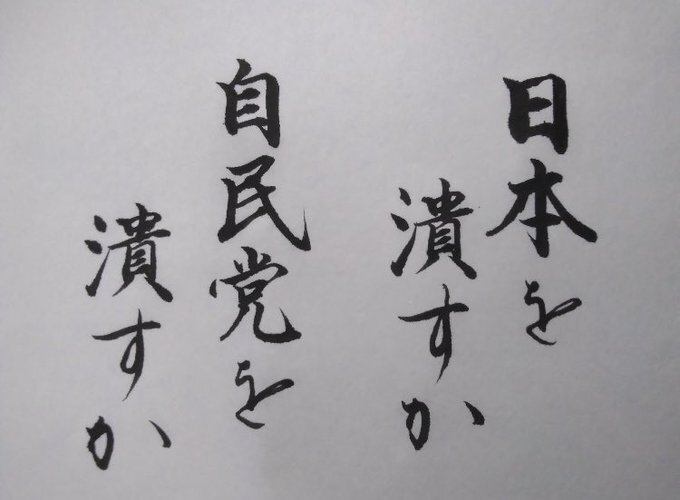 日本を
潰すか
自民党を
潰すか